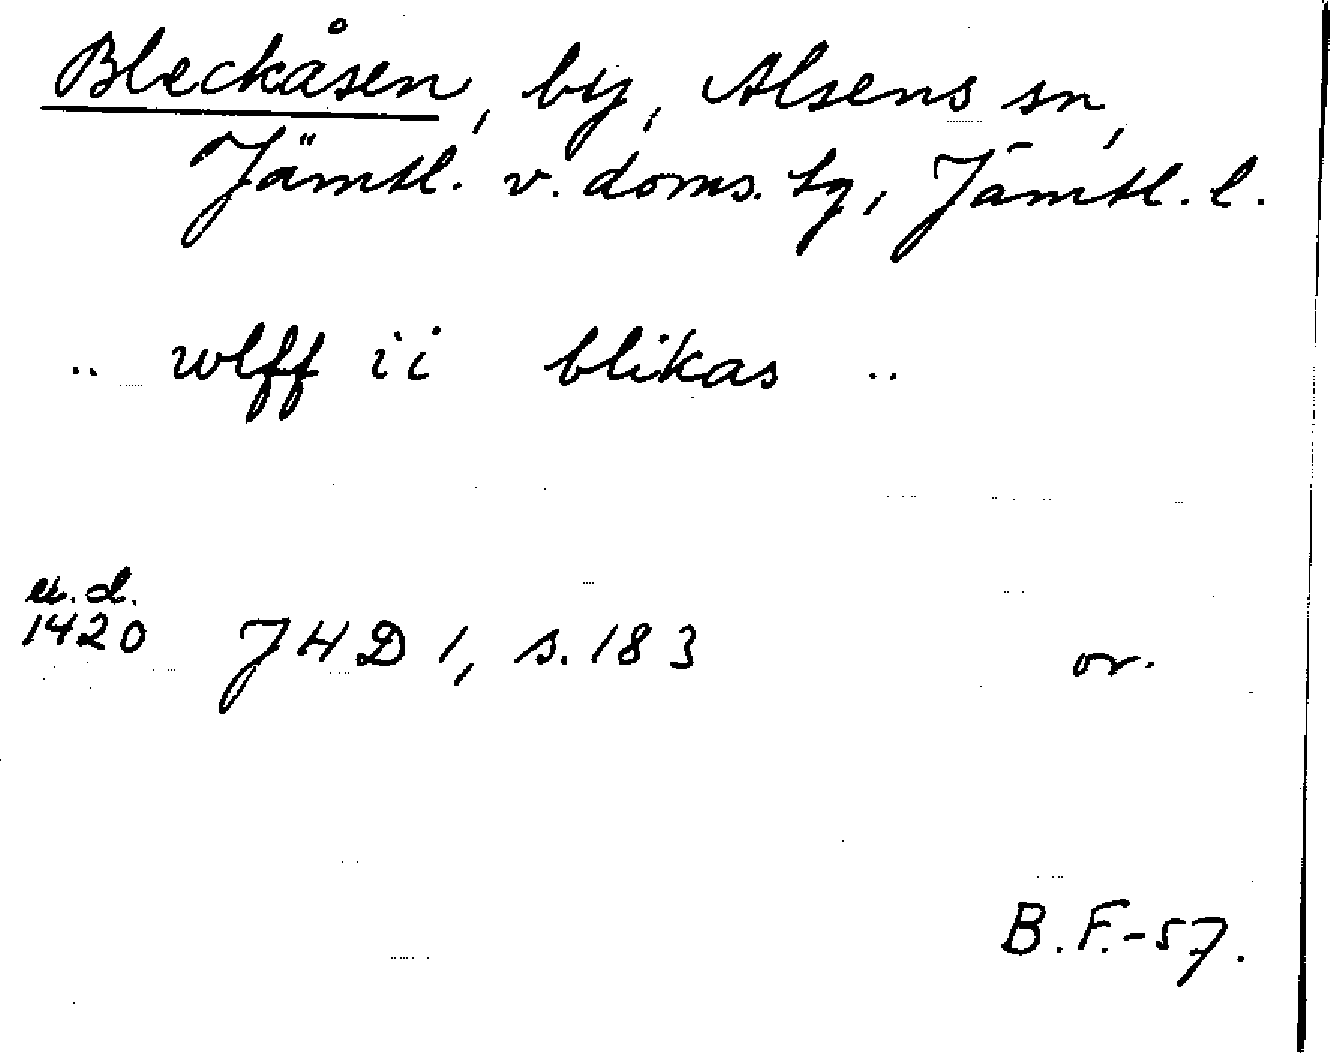 Bleckåsen, by, Alsens sn,
Jämtl. v. doms. tg, Jämtl. l.
.. wlff i i blikas ..
u.d.
1420 JHD 1, s. 183 or.
B.F.-57.